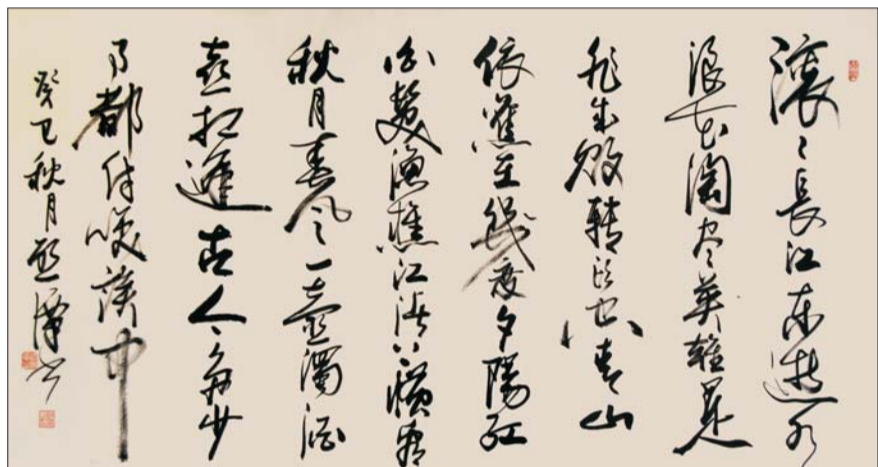 滚〻長江东逝水
浪花淘尽英雄是
非成败轉头空青山
依舊在幾度夕陽红
白髮漁樵江渚上惯看
秋月春风一壶濁酒
喜相逢古今多少
事都付笑談中
癸巳秋月书